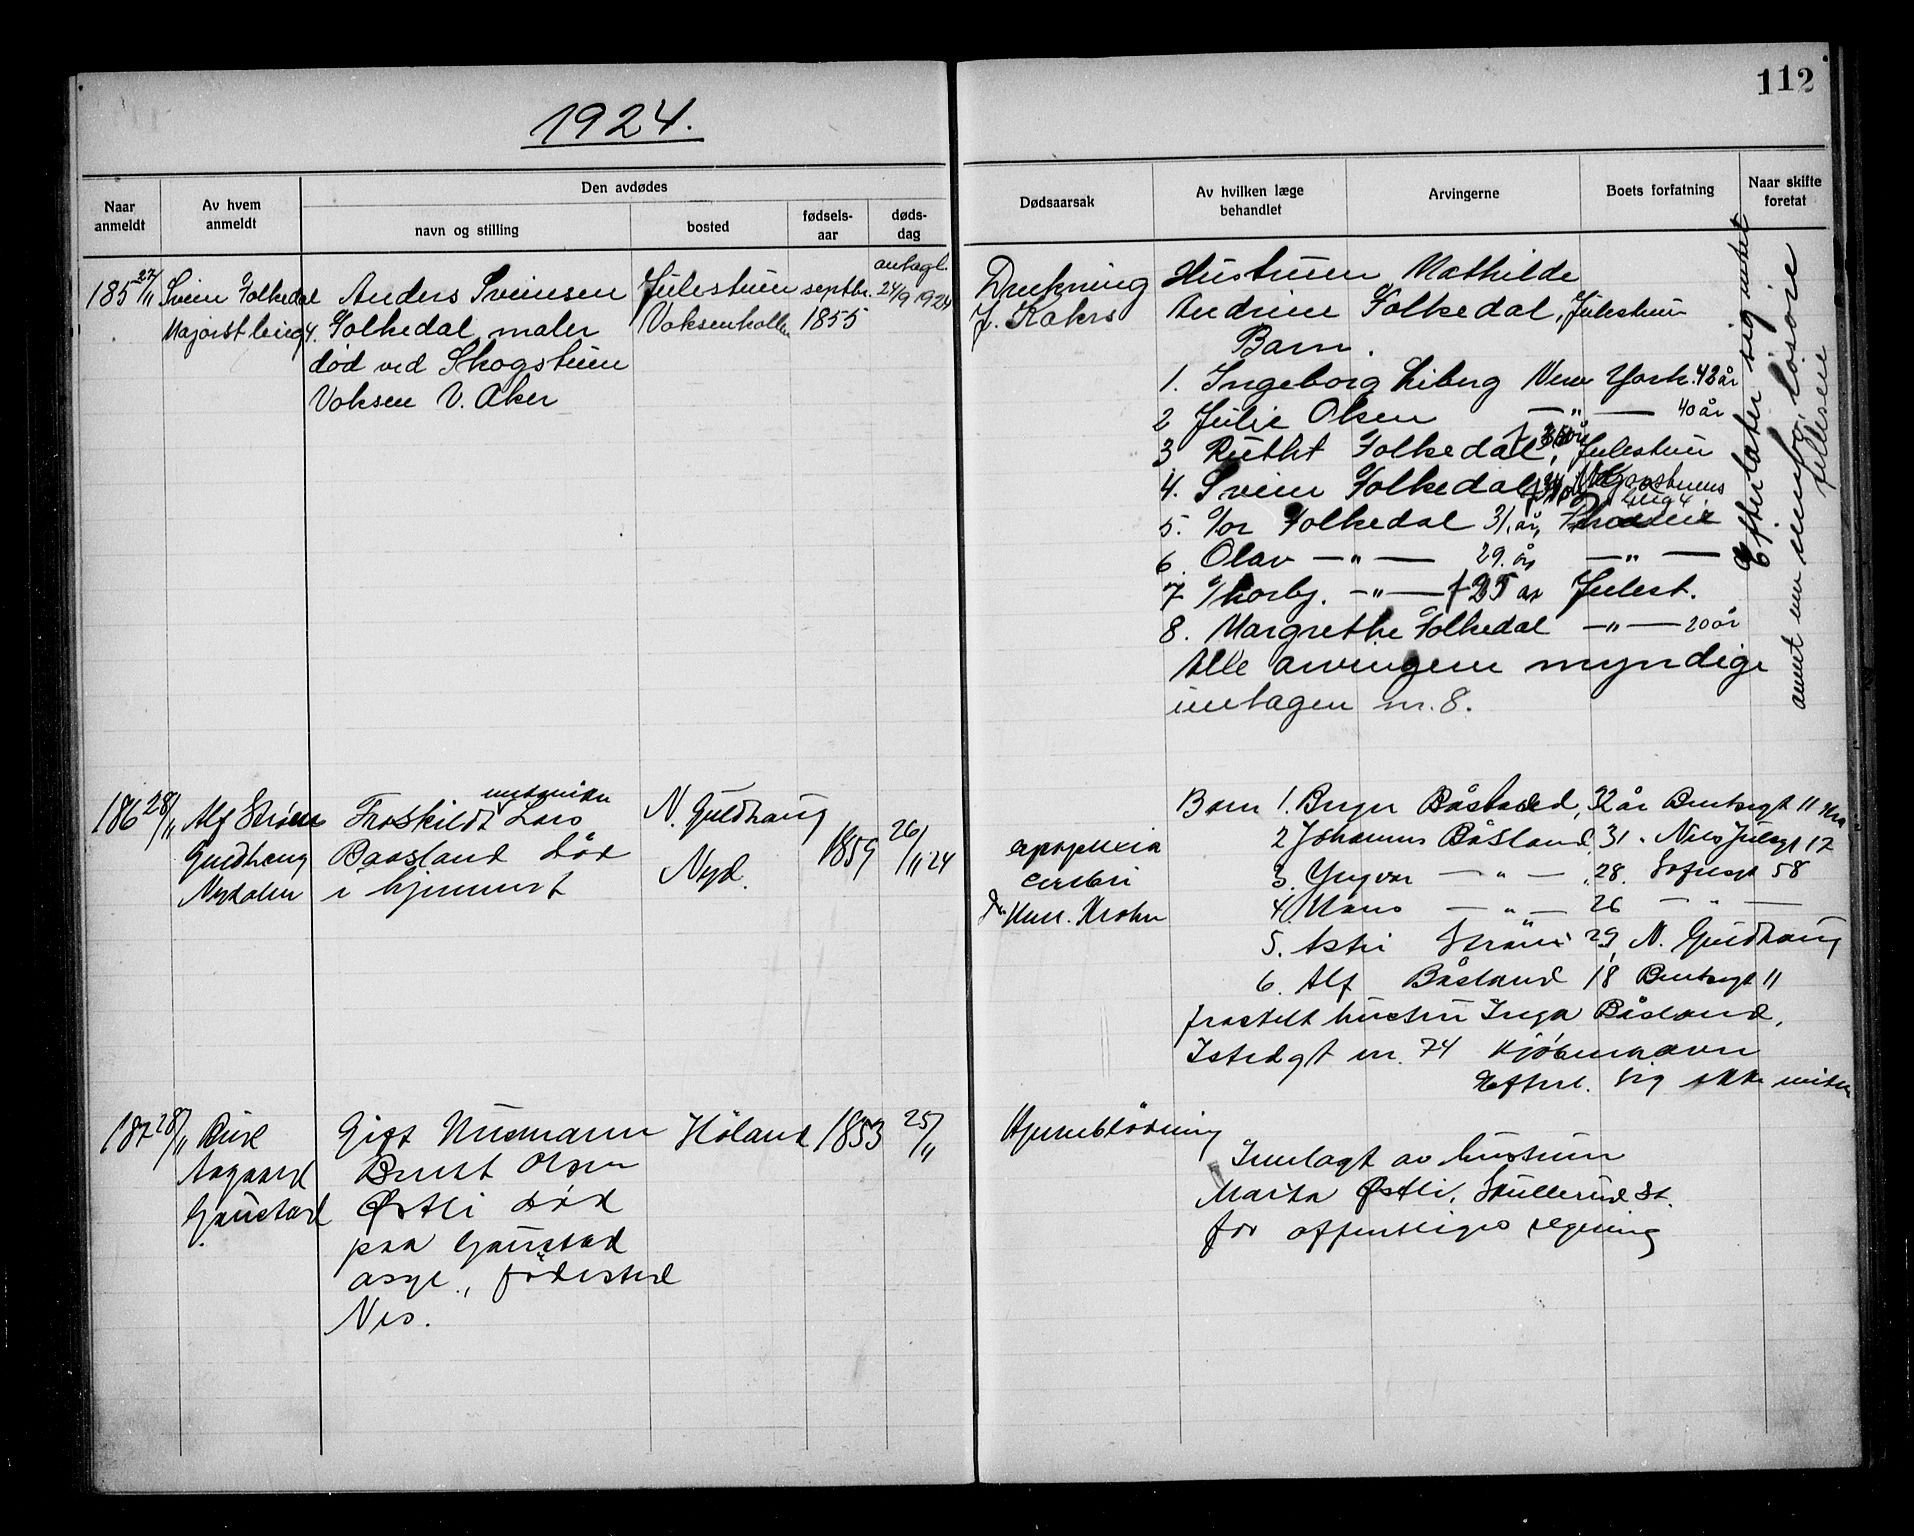 112
1924.
Naar anmeldt
Av hvem anmeldt
Den avdødes
navn og stilling
bosted
fødsels-aar
døds-dag
Dødsaarsak
Av hvilken læge behandlet
Arvingerne
Boets forfatning
Naar skifte foretat
185 27/11 Svein Folkedal
Majorst leieg 4.
Anders Sveinsen
Folkedal maler
død ved Skogstuen
Voksen V. Aker
Julestuen
Voksenkollen
septbr.
1855
antagl.
24/9 1924
Drukning
J. Kahrs
Hustruen Mathilde
Andrine Folkedal, Julestuen
Barn.
1. Ingeborg Liberg New York. 42 år
2 Julie Olsen — " — 40 år
3 Rutht Folkedal, Julestuen
4. Svein Folkedal
5. Tor Folkedal 31. år,
6. Olav — " — 29. år — " —
7 Thorbj. — " — 25 år Julest.
8. Margrethe Folkedal — " — 20 år
Alle arvingene myndige
untagen nr. 8.
Efterlater sig intet
annet en innbo, løsøre
fælleseie
186 28/11 Alf Strøm
Guldhaug
Nydalen
mekaniker
Fraskildt Lars
Baasland død
i hjemmet
N. Guldhaug
Nyd.
1859
26/11 24
apoplexia
cerebri
Dr Krohn
Barn 1. Birger Båsland, 32 år Bentsegt 11 Kra
2 Johannes Båsland, 31. Nils Juelsgt 17
3. Yngvar — " — 28. Sofiesgt 58
4. Hans — " — 26 — " —
5. Astri Strøm 29, N. Guldhaug
6. Alf Båsland 18 Bentsegt 11
fraskilt hustru Inga Båsland,
Istedgt nr. 74 Kjøbenhavn
Efterl. sig ikke midler
187 28/11
Aagaard
Gaustad
Gift Husmann
Bernt Olsen
Østli død
paa Gaustad
asyl., fødested
Nes.
Høland
1853
25/11
Hjerneblødning
Innlagt av hustruen
Marta Østli, Skullerud st.
for offentliges regning